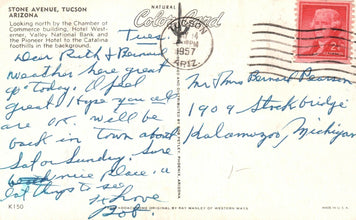 STONE AVENUE, TUCSON
ARIZONA
Looking north by the Chamber of
Commerce building, Hotel West-
erner, Valley National Bank and
the Pioneer Hotel to the Catalina
foothills in the background.
Natural
Color Card
Tues.
Dear Ruth & Bernard
Weather here great
up today. I feel
great & Hope you all
are OK. Will be
back in town about
Sat or Sunday. Sure
nice place, a
lot thgs to see
Love
Bob
K150
TUCSON
1957
ARIZ.
2¢
Mr & Mrs Bernard Pearson
1909 Stockbridge
Kalamazoo, Michigan
KODACHROME ORIGINAL BY RAY MANLEY OF WESTERN WAYS
MADE IN U.S.A.